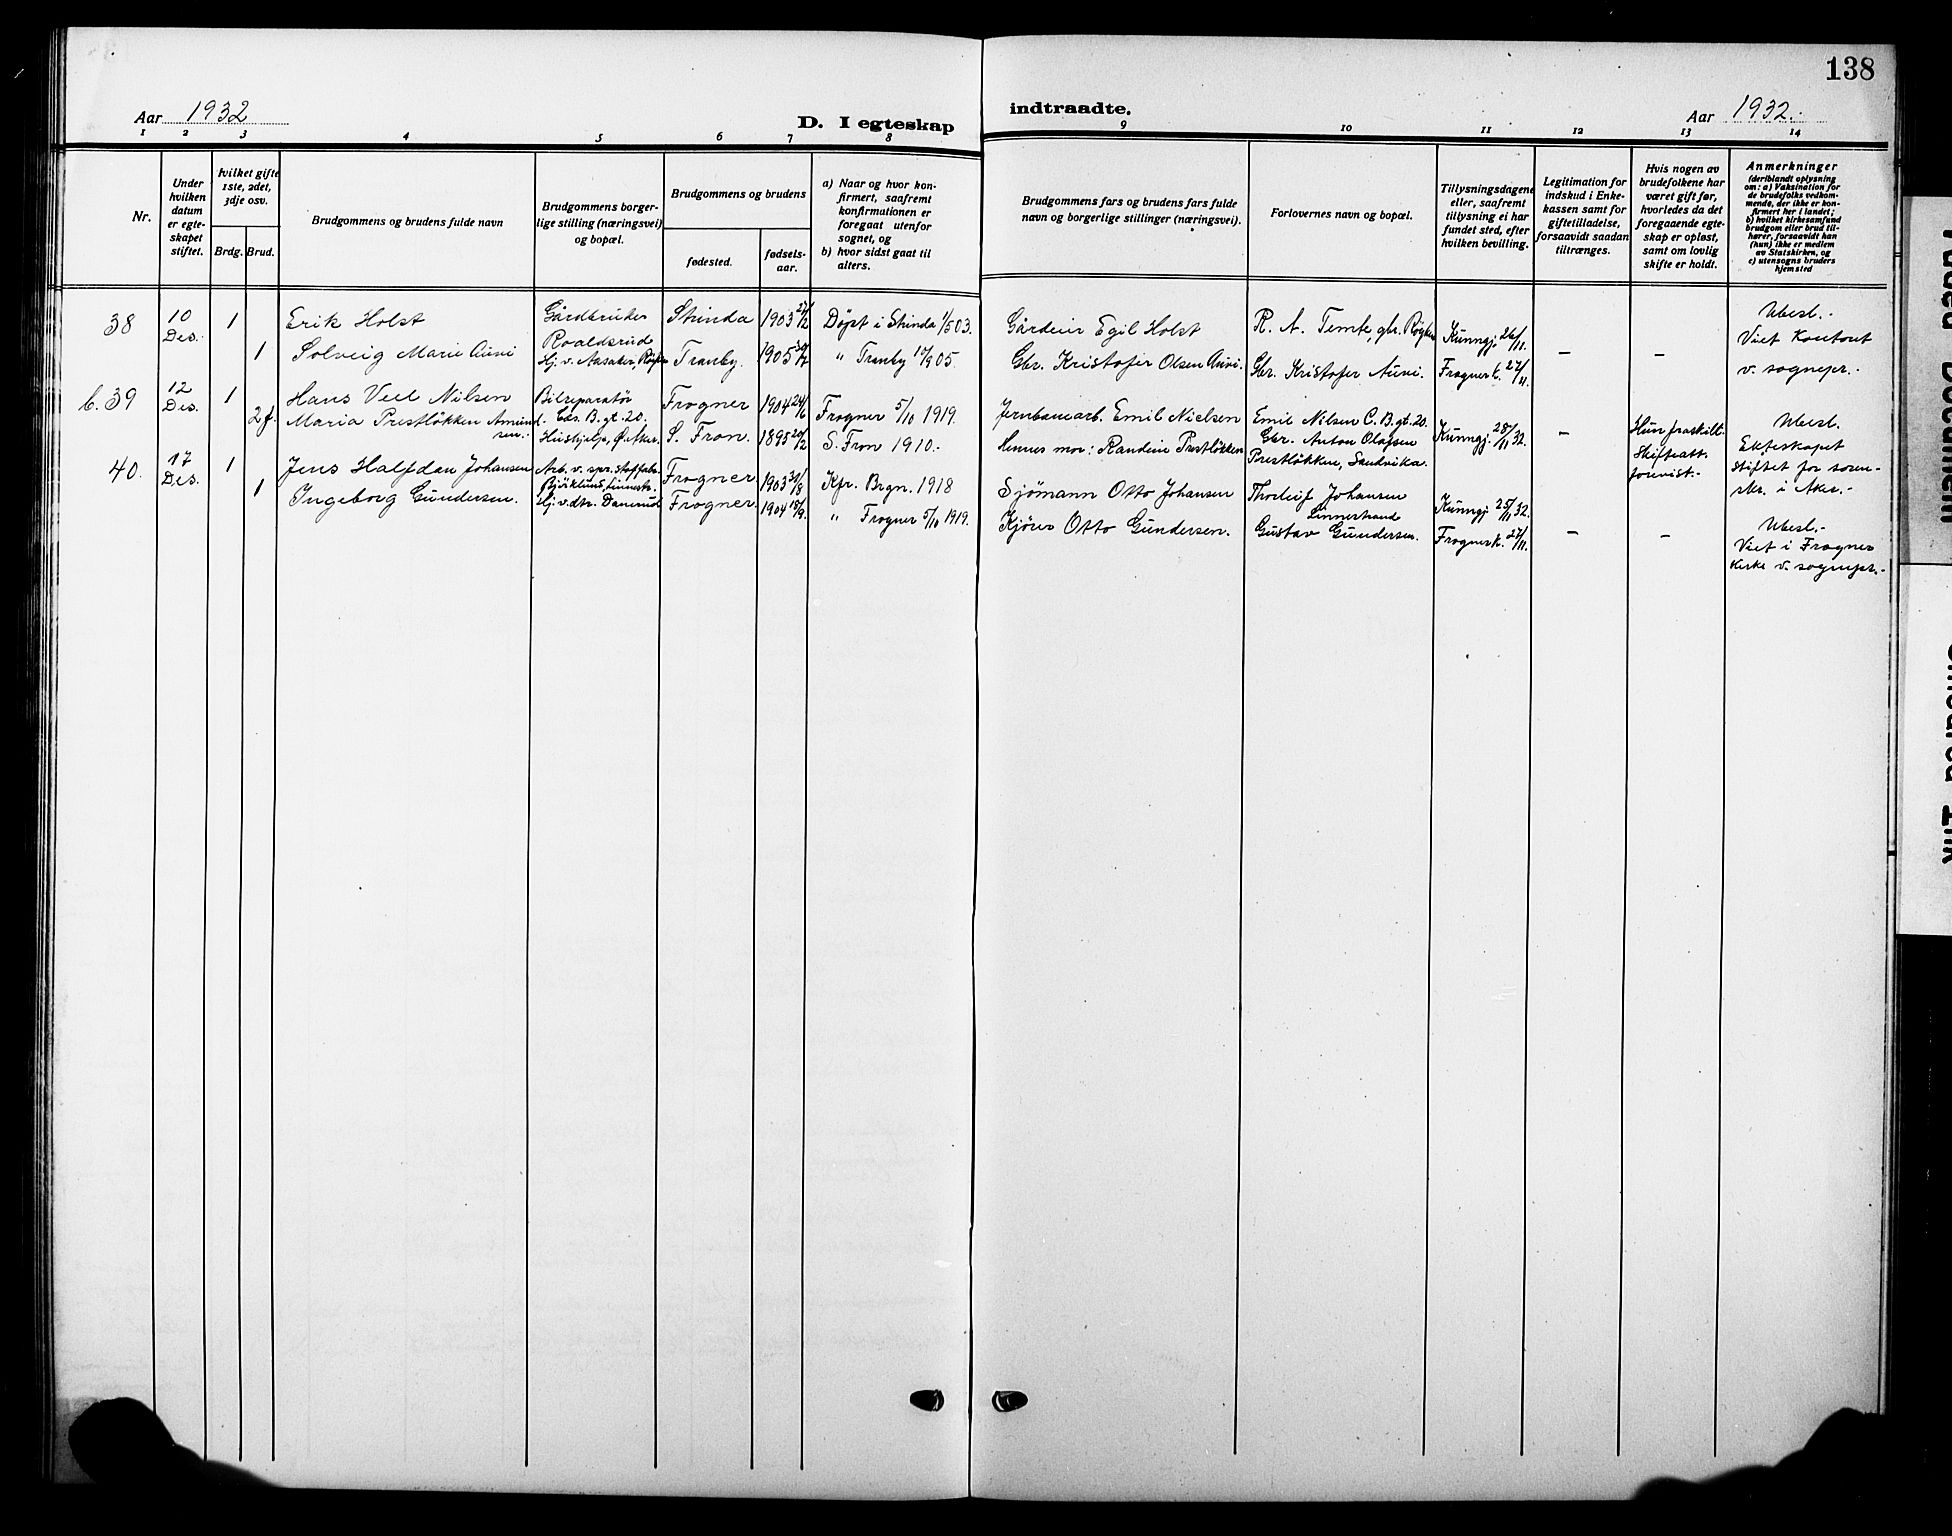 138
Aar 1932
D. I egteskap
indtraadte.
Aar 1932.
1 2 3 4 5 6 7 8 9 10 11 12 13 14
Nr.
Under
hvilken
datum
er egte-
skapet
stiftet.
hvilket gifte
1ste, 2det,
3dje osv.
Brdg. Brud.
Brudgommens og brudens fulde navn
Brudgommens borger-
lige stilling (næringsvei)
og bopæl.
Brudgommens og brudens
fødested.
fødsels-
aar.
a) Naar og hvor kon-
firmert, saafremt
konfirmationen er
foregaat utenfor
sognet, og
b) hvor sidst gaat til
alters.
Brudgommens fars og brudens fars fulde
navn og borgerlige stillinger (næringsvei).
Forlovernes navn og bopæl.
Tillysningsdagene
eller, saafremt
tillysning ei har
fundet sted, efter
hvilken bevilling.
Legitimation for
indskud i Enke-
kassen samt for
giftetilladelse,
forsaavidt saadan
tiltrænges.
Hvis nogen av
brudefolkene har
været gift før,
hvorledes da det
foregaaende egte-
skap er opløst,
samt om lovlig
skifte er holdt.
Anmerkninger
(deriblandt oplysning
om: a) Vaksination for
de brudefolks vedkom-
mende, der ikke er kon-
firmert her i landet;
b) hvilket kirkesamfund
brudgom eller brud til-
hører, forsaavidt han
(hun) ikke er medlem
av Statskirken, og
c) utensogns bruders
hjemsted
38
10
Des.
1
Erik Holst
Gårdbruker
Roaldsrud
Strinda
1903 27/2
Døpt i Strinda 1/5 03.
Gårdeier Egil Holst
R. A. Temte, gbr. Røyken
Kunngj. 26/11.
Ubesl.-
1
Solveig Marie Auvi
Hj. v. Aasaker, Røyken
Tranby.
1905 30/7
" Tranby 10/9 05.
Gbr. Kristofer Olsen Auvi.
Gbr. Kristofer Auvi.
Frogner k. 27/11.
–
–
Viet Kontoret
v. sognepr.-
b. 39
12
Des.
1
Hans Veel Nilsen
Bilreparatør
C. B. gt. 20.
Frogner
1904 24/6
Frogner 5/10 1919.
Jernbanearb. Emil Nielsen
Emil Nilsen C. B. gt. 20.
Kunngj. 28/11 32.
–
Hun fraskilt.
Skifteatt.
forevist.-
Ubesl.
Ekteskapet
stiftet for soren-
skr. i Aker.-
2 f.
Maria Prestløkken Amund-
sen.
Hushjelp, Ø. Aker.
S. Fron.
1895 20/2
S. Fron 1910.-
Hennes mor: Randine Prestløkken
Gbr. Anton Olafsen
Prestløkken, Sandvika.
40.
17
Des.
1
Jens Halfdan Johansen
Arb. v. spr. stoffabr.
Frogner
1903 31/8
Kfr. Brgn. 1918
Sjømann Otto Johansen
Thorleif Johansen
Linnestrand
Kunngj. 25/11 32.
Ubesl.-
1
Ingeborg Gundersen.
Hj. v. dtr. Damsrud
Frogner
1904 10/9.
" Frogner 5/10 1919.
Kjører Otto Gundersen.
Gustav Gundersen.
Frogner k. 27/11.
–
–
Viet i Frogner
kirke v. sognepr.-